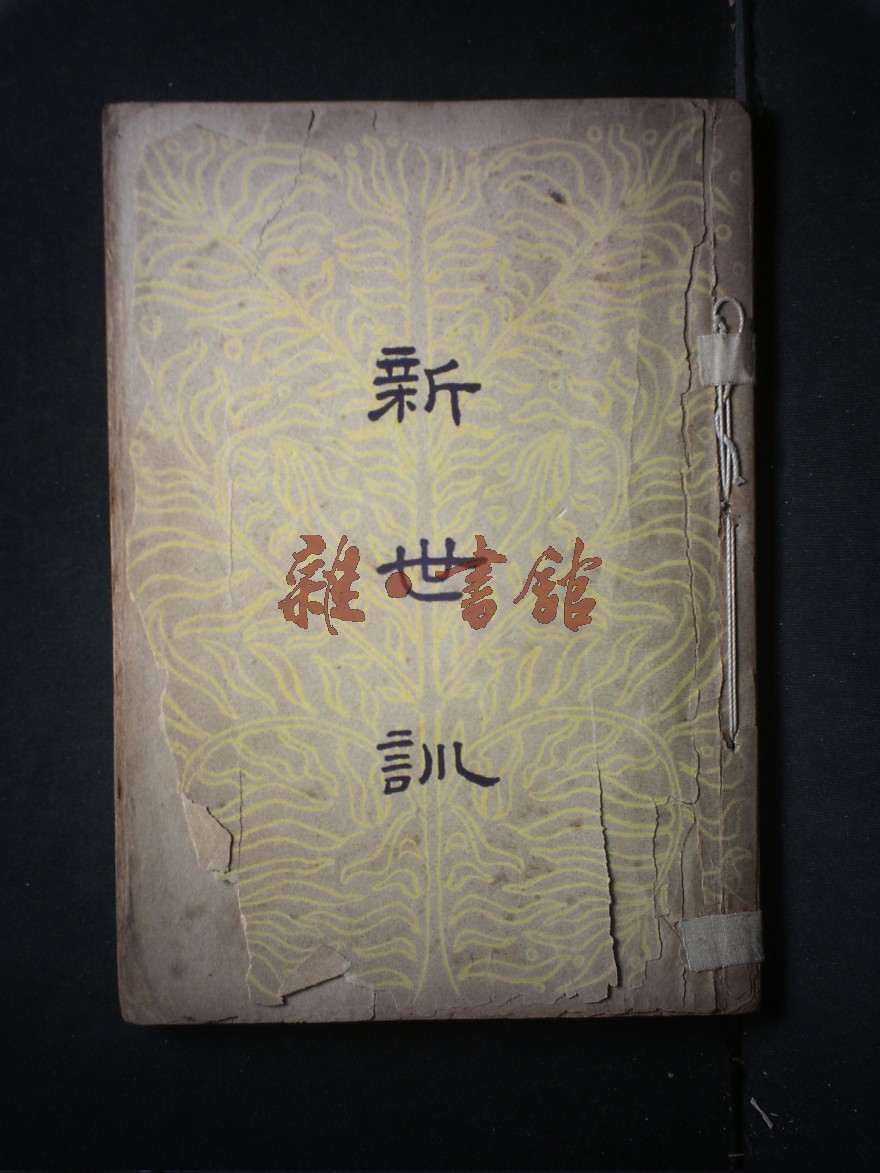 新世訓
雜·書館